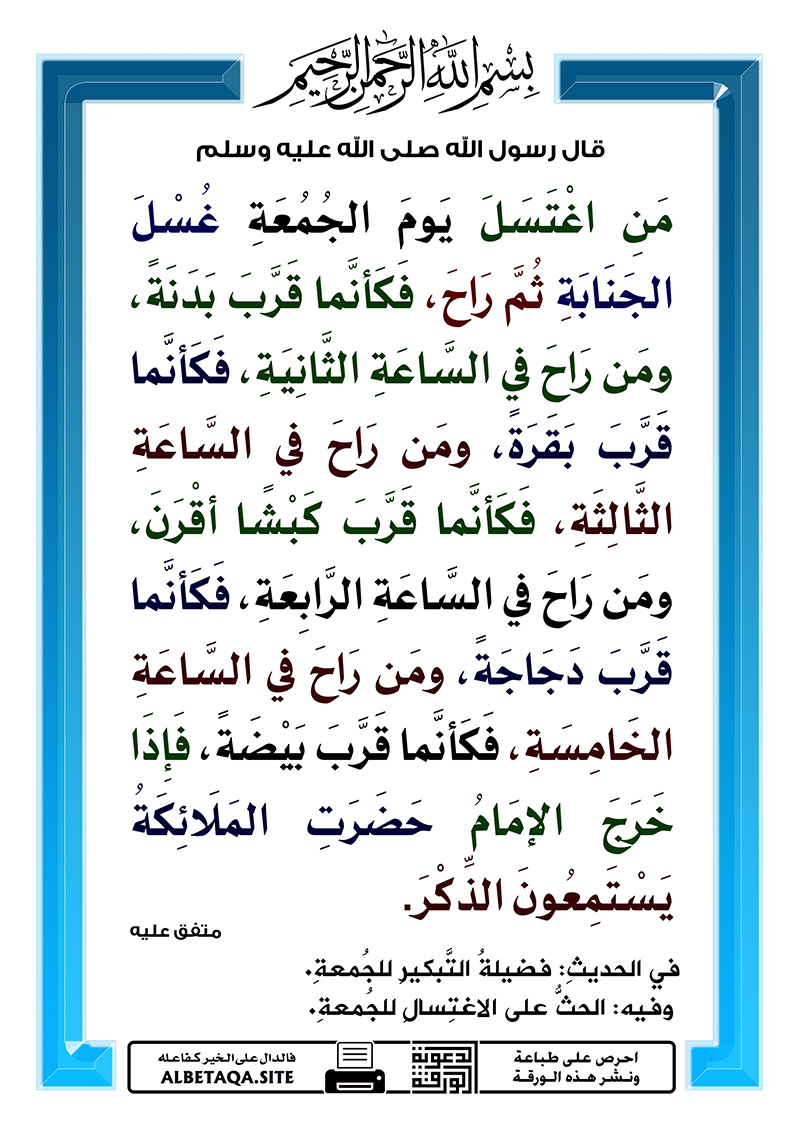 بِسْمِ اللَّهِ الرَّحْمَنِ الرَّحِيمِ
قال رسول الله صلى الله عليه وسلم
مَنِ اغْتَسَلَ يَومَ الجُمُعَةِ غُسْلَ
الجَنَابَةِ ثُمَّ رَاحَ، فَكَأنَّما قَرَّبَ بَدَنَةً،
ومَن رَاحَ في السَّاعَةِ الثَّانِيَةِ، فَكَأنَّما
قَرَّبَ بَقَرَةً، ومَن رَاحَ في السَّاعَةِ
الثَّالِثَةِ، فَكَأنَّما قَرَّبَ كَبْشًا أقْرَنَ،
ومَن رَاحَ في السَّاعَةِ الرَّابِعَةِ، فَكَأنَّما
قَرَّبَ دَجَاجَةً، ومَن رَاحَ في السَّاعَةِ
الخَامِسَةِ، فَكَأنَّما قَرَّبَ بَيْضَةً، فَإِذَا
خَرَجَ الإمَامُ حَضَرَتِ المَلَائِكَةُ
يَسْتَمِعُونَ الذِّكْرَ.
متفق عليه
في الحديثِ: فضيلةُ التَّبكيرِ للجُمعةِ.
وفيه: الحثُّ على الاغتِسالِ للجُمعةِ.
احرص على طباعة
ونشر هذه الورقة
الورقة الدعوية
فالدال على الخير كفاعله
ALBETAQA.SITE